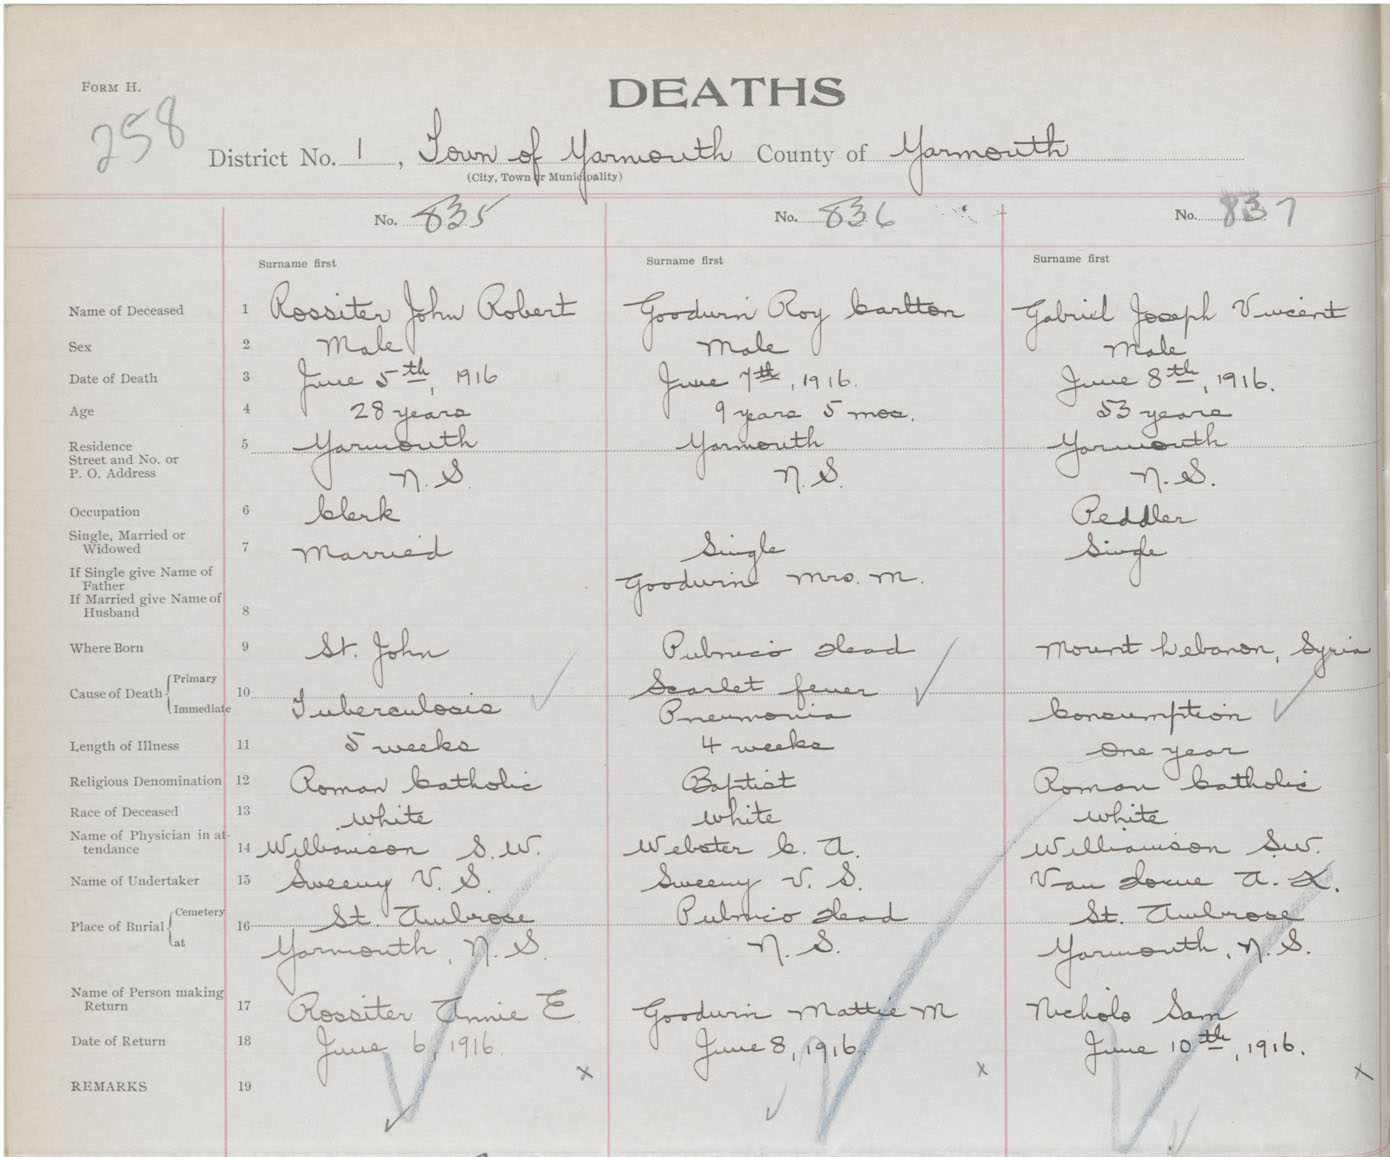 FORM H.
DEATHS
258
District No. 1, Town of Yarmouth County of Yarmouth
(City, Town or Municipality)
No. 835 No. 836 No. 837
Surname first Surname first Surname first
Name of Deceased 1 Rossiter John Robert Goodwin Roy Carlton Gabriel Joseph Vincent
Sex 2 Male Male Male
Date of Death 3 June 5th, 1916 June 7th, 1916. June 8th, 1916.
Age 4 28 years 9 years 5 mos. 53 years
Residence 5 Yarmouth Yarmouth Yarmouth
Street and No. or
P. O. Address N.S. N.S. N.S.
Occupation 6 Clerk Peddler
Single, Married or
Widowed 7 Married Single Single
If Single give Name of
Father Goodwin Mrs. M.
If Married give Name of
Husband 8
Where Born 9 St. John Pubnico Head Mount Lebanon, Syria
Cause of Death Primary 10 Scarlet fever
Immediate Tuberculosis Pneumonia Consumption
Length of Illness 11 5 weeks 4 weeks One year
Religious Denomination 12 Roman Catholic Baptist Roman Catholic
Race of Deceased 13 White White White
Name of Physician in at-
tendance 14 Williamson S.W. Webster C. A. Williamson S.W.
Name of Undertaker 15 Sweeny V. S. Sweeny V. S. Van Horne A. K.
Place of Burial Cemetery 16 St. Ambrose Pubnico Head St. Ambrose
at Yarmouth, N.S. N.S. Yarmouth, N.S.
Name of Person making
Return 17 Rossiter Annie E. Goodwin Mattie M Nichols Sam
Date of Return 18 June 6, 1916 June 8, 1916 June 10th, 1916.
REMARKS 19 x x x